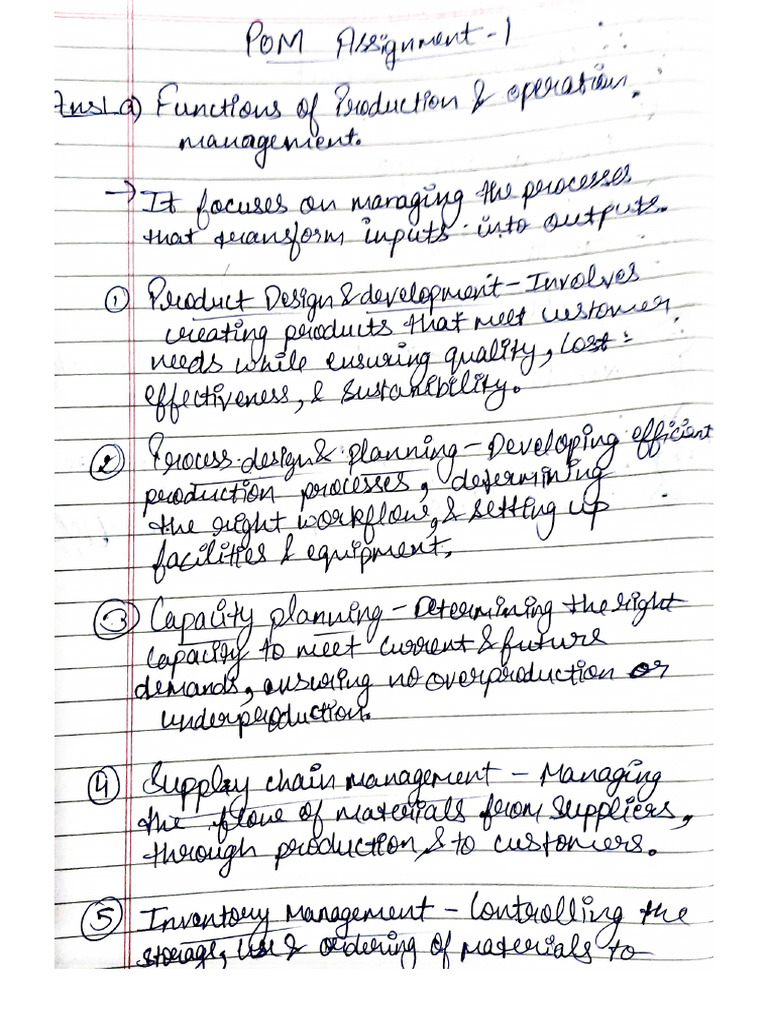 POM Assignment-1
Ans1.a) Functions of Production & operation
management.
→ It focuses on managing the processes
that transform inputs into outputs.
① Product Design & development - Involves
creating products that meet customer
needs while ensuring quality, cost-
effectiveness, & sustanibility.
② Process design & planning - Developing efficient
production processes, determining
the right workflow, & setting up
facilities & equipment.
③ Capacity planning - Determining the right
capacity to meet current & future
demands, ensuring no overproduction or
underproduction.
④ Supply chain management - Managing
the flow of materials from suppliers,
through production & to customers.
⑤ Inventory Management - Controlling the
storage, use & ordering of materials to